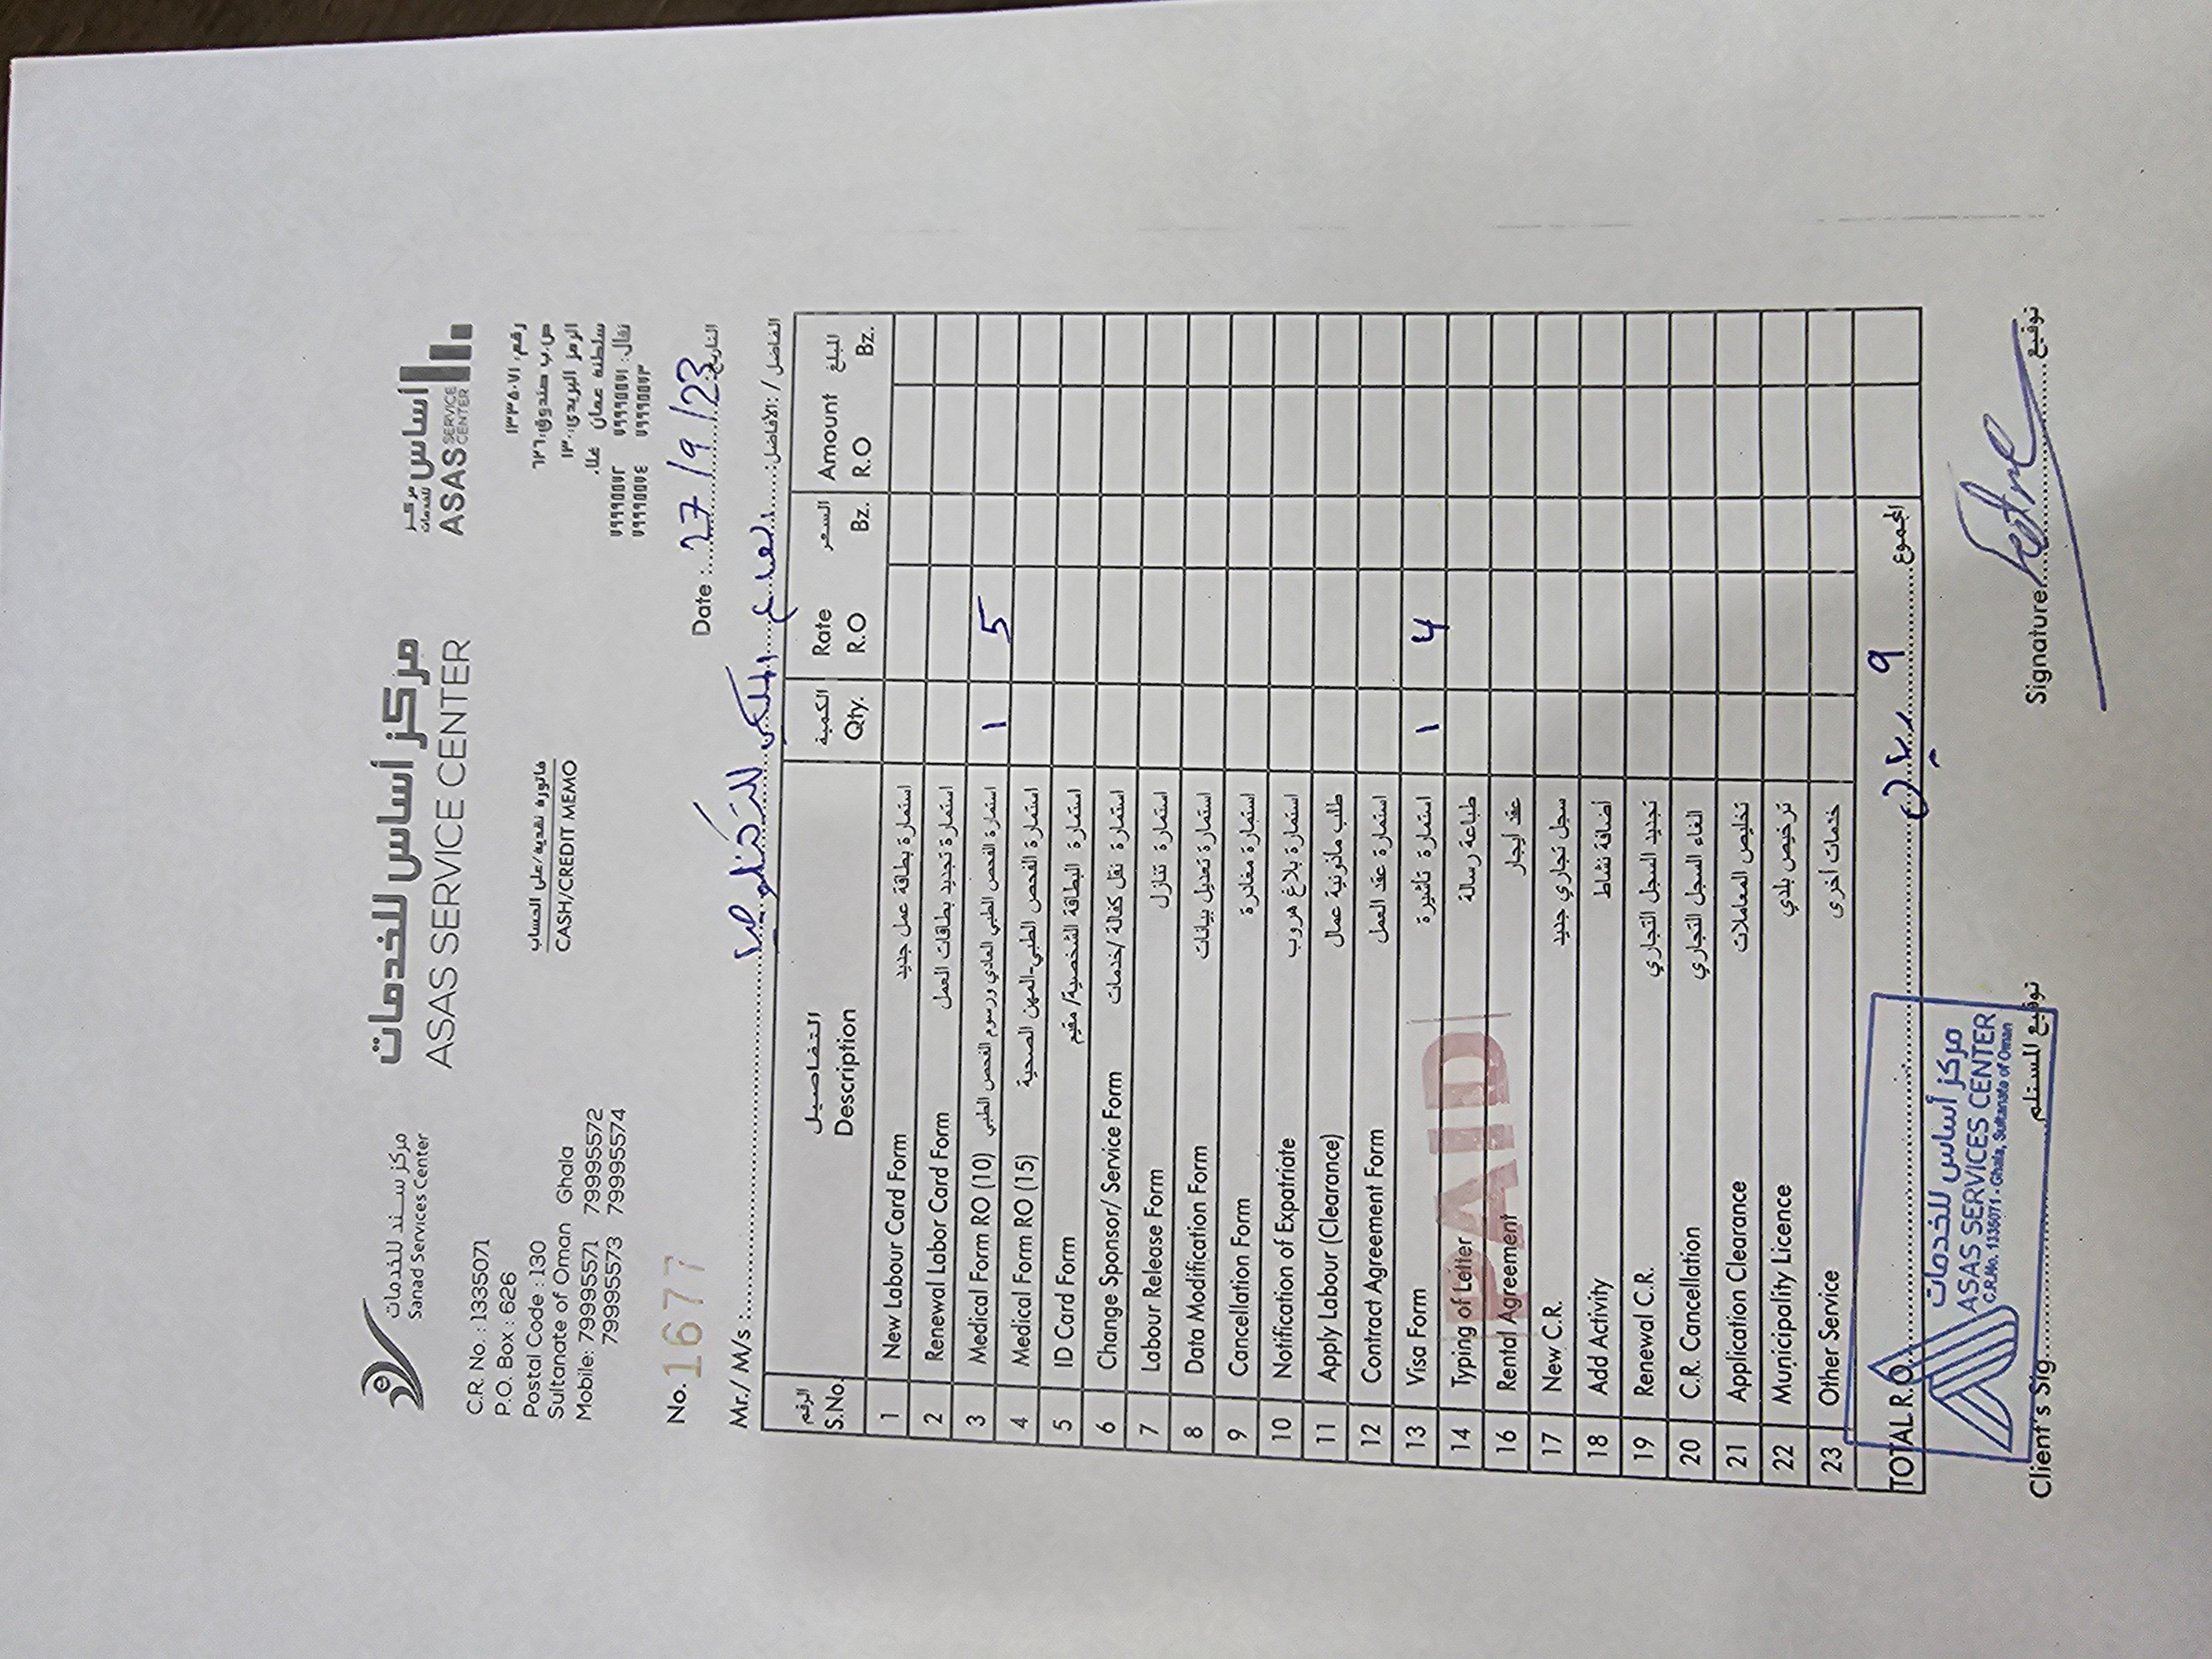 مركز سند للخدمات
Sanad Services Center
مركز أساس للخدمات
ASAS SERVICE CENTER
مركز أساس للخدمات
ASAS SERVICE CENTER
C.R. No. : 1335071
P.O. Box : 626
Postal Code : 130
Sultanate of Oman Ghala
Mobile: 79995571 79995572
79995573 79995574
فاتورة نقدية/على الحساب
CASH/CREDIT MEMO
رقم: ١٣٣٥٠٧١
ص.ب صندوق: ٦٢٦
الرمز البريدي: ١٣٠
سلطنة عمان غلا.
نقال: ٧٩٩٩٥٥٧١ ٧٩٩٩٥٥٧٢
٧٩٩٩٥٥٧٣ ٧٩٩٩٥٥٧٤
No. 1677
Date : 27/9/23 التاريخ
Mr./ M/s : الفاضل / الأفاضل:
الرقم التفاصيل الكمية السعر المبلغ
S.No. Description Qty. Rate Amount
R.O Bz. R.O Bz.
1 New Labour Card Form استمارة بطاقة عمل جديد
2 Renewal Labor Card Form استمارة تجديد بطاقات العمل
3 Medical Form RO (10) استمارة الفحص الطبي العادي ورسوم الفحص الطبي 1 5
4 Medical Form RO (15) استمارة الفحص الطبي-المهن الصحية
5 ID Card Form استمارة البطاقة الشخصية/ مقيم
6 Change Sponsor/ Service Form استمارة نقل كفالة /خدمات
7 Labour Release Form استمارة تنازل
8 Data Modification Form استمارة تعديل بيانات
9 Cancellation Form استمارة مغادرة
10 Notification of Expatriate استمارة بلاغ هروب
11 Apply Labour (Clearance) طلب مأذونية عمال
12 Contract Agreement Form استمارة عقد العمل
13 Visa Form استمارة تأشيرة 1 4
14 Typing of Letter طباعة رسالة
16 Rental Agreement عقد ايجار
17 New C.R. سجل تجاري جديد
18 Add Activity أضافة نشاط
19 Renewal C.R. تجديد السجل التجاري
20 C.R. Cancellation الغاء السجل التجاري
21 Application Clearance تخليص المعاملات
22 Municipality Licence ترخيص بلدي
23 Other Service خدمات أخرى
PAID
TOTAL R.O. 9 ريال المجموع
مركز أساس للخدمات
ASAS SERVICES CENTER
C.R.No. 1335071 - Ghala, Sultanate of Oman
Client's Sig. توقيع المستلم
Signature توقيع